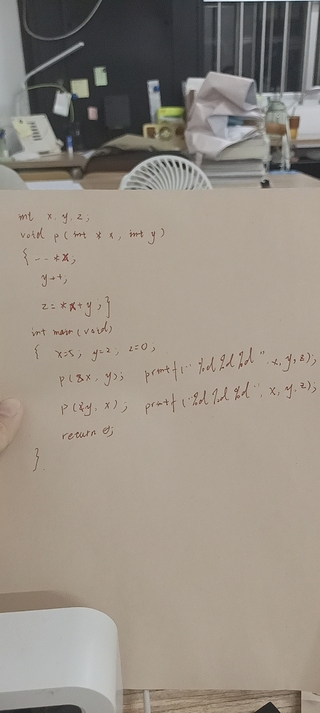 int x, y, z;
void p(int * x, int y)
{ -- *x;
y++;
z = *x + y; }
int main (void)
{ x=5, y=2, z=0;
p(&x, y); printf("%d %d %d", x, y, z);
p(&y, x); printf("%d %d %d", x, y, z);
return 0;
}